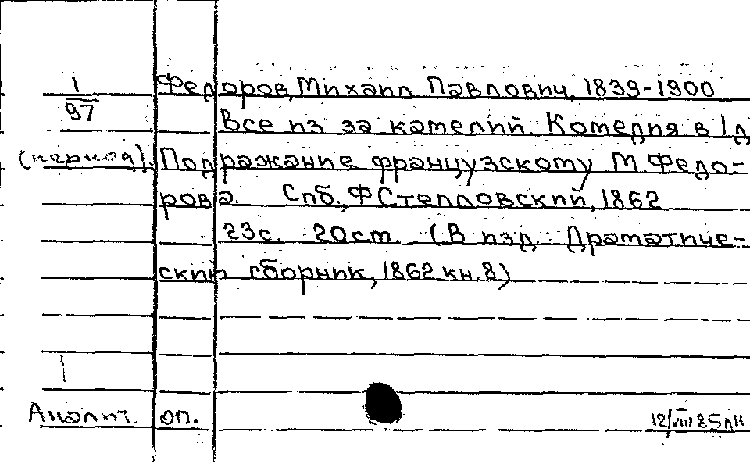 1
97
Федоров, Михаил Павлович, 1839-1900
Все из за камелий. Комедия в 1 д
(период). Подражание французскому М. Федо-
рова. Спб., Ф Стелловский, 1862
23с. 20см. (В изд. Драматиче-
ский сборник, 1862 кн. 8)
Аналит. оп.